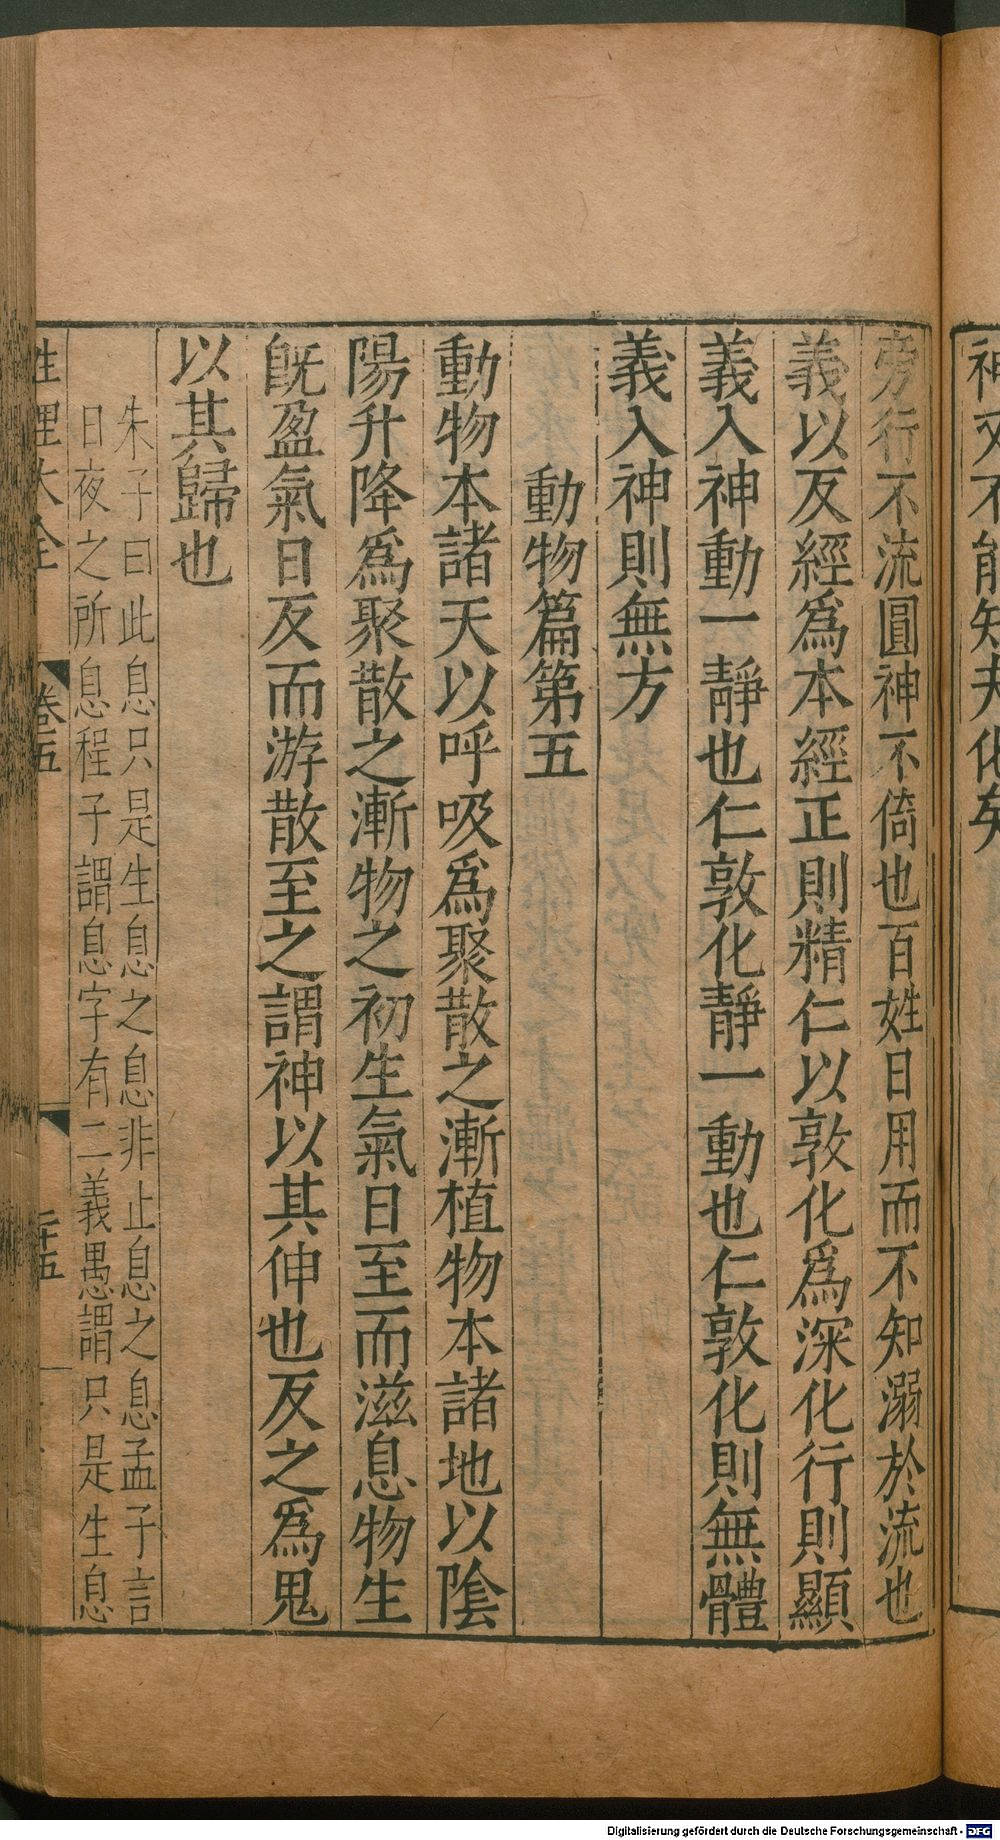 神又不能知夫化矣
旁行不流圓神不倚也百姓日用而不知溺於流也
義以反經爲本經正則精仁以敦化爲深化行則顯
義入神動一靜也仁敦化靜一動也仁敦化則無體
義入神則無方
動物篇第五
動物本諸天以呼吸爲聚散之漸植物本諸地以陰
陽升降爲聚散之漸物之初生氣日至而滋息物生
旣盈氣日反而游散至之謂神以其伸也反之爲鬼
以其歸也
朱子曰此息只是生息之息非止息之息孟子言
日夜之所息程子謂息字有二義愚謂只是生息
性理大全 卷五 二十五
Digitalisierung gefördert durch die Deutsche Forschungsgemeinschaft - DFG